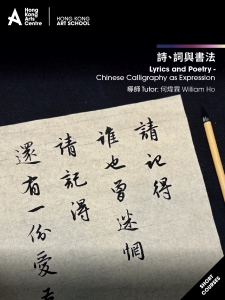 Hong
Kong
Arts
Centre
HONG KONG
ART SCHOOL
詩、詞與書法
Lyrics and Poetry -
Chinese Calligraphy as Expression
導師 Tutor: 何煒霖 William Ho
請記得
誰也曾迷惘
請記得
還有一份愛
SHORT
COURSES